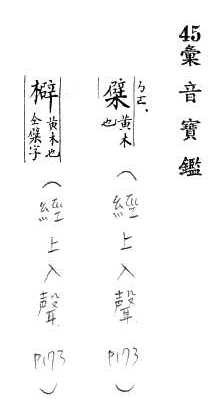 45彙音寶鑑
ㄅㄛˋ
檗 黃木也
(經上入聲 P173)
檘 黃木也 仝檗字
(經上入聲 P173)